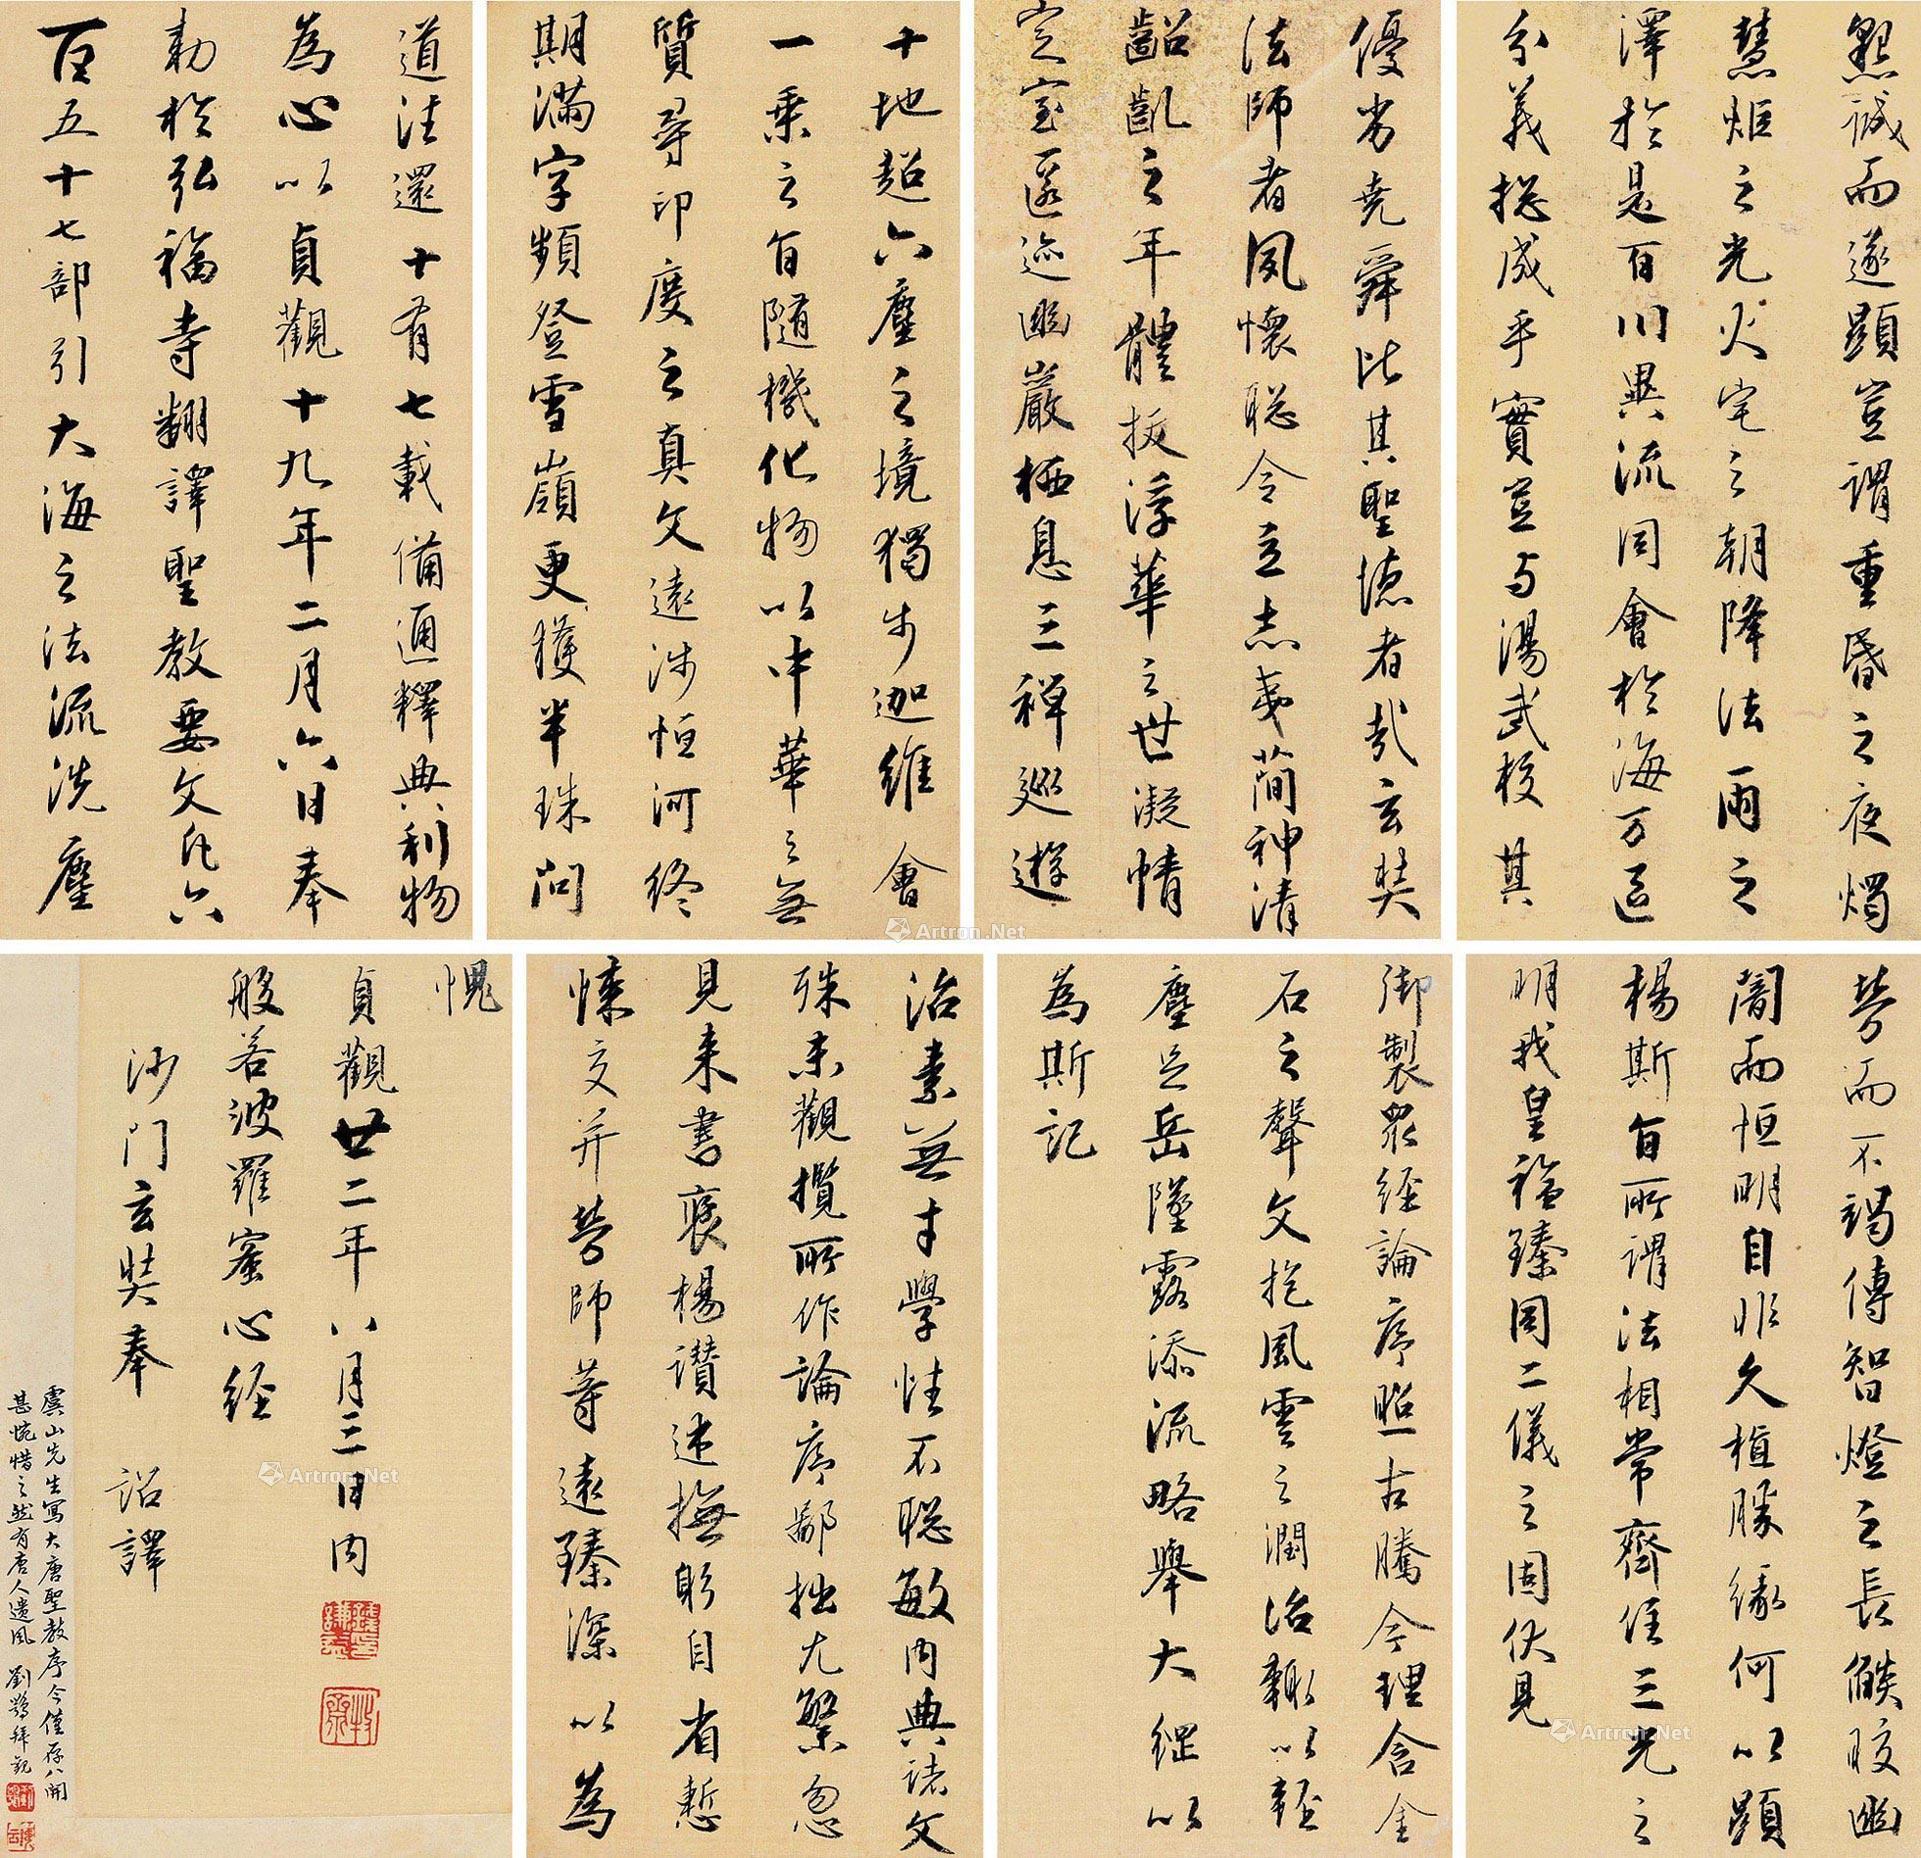 懇誠而遂顯豈謂重昏之夜燭
慧炬之光火宅之朝降法雨之
澤於是百川異流同會於海万區
分義捴成乎實豈与湯武校其
優劣堯舜比其聖德者哉玄奘
法師者夙懷聡令立志夷簡神清
齠齔之年體拔浮華之世凝情
定室匿迹幽巖栖息三禅巡遊
十地超六塵之境獨步迦維會
一乗之旨隨機化物以中華之無
質尋印度之真文遠涉恒河終
期滿字頻登雪嶺更獲半珠問
道法還十有七載備通釋典利物
為心以貞觀十九年二月六日奉
勅於弘福寺翻譯聖教要文凡六
百五十七部引大海之法流洗塵
勞而不竭傳智燈之長燄皎幽
闇而恒明自非久植勝緣何以顯
楊斯旨所謂法相常齊住三光之
明我皇福臻同二儀之固伏見
御製眾経論序照古騰今理含金
石之聲文抱風雲之潤治輙以輕
塵足岳墜露添流略舉大綱以
為斯記
治素無才學性不聡敏内典諸文
殊未觀攬所作論序鄙拙尤繁忽
見来書褒楊讃述撫躬自省慙
悚交并勞師等遠臻深以為
愧
貞觀廿二年八月三日内
般若波羅蜜心経
沙門玄奘奉 詔譯
虞山先生寫大唐聖教序今僅存八開
甚惋惜之然有唐人遺風 劉鶚拜觀
Artron.Net
Artron.Net
Artron.Net